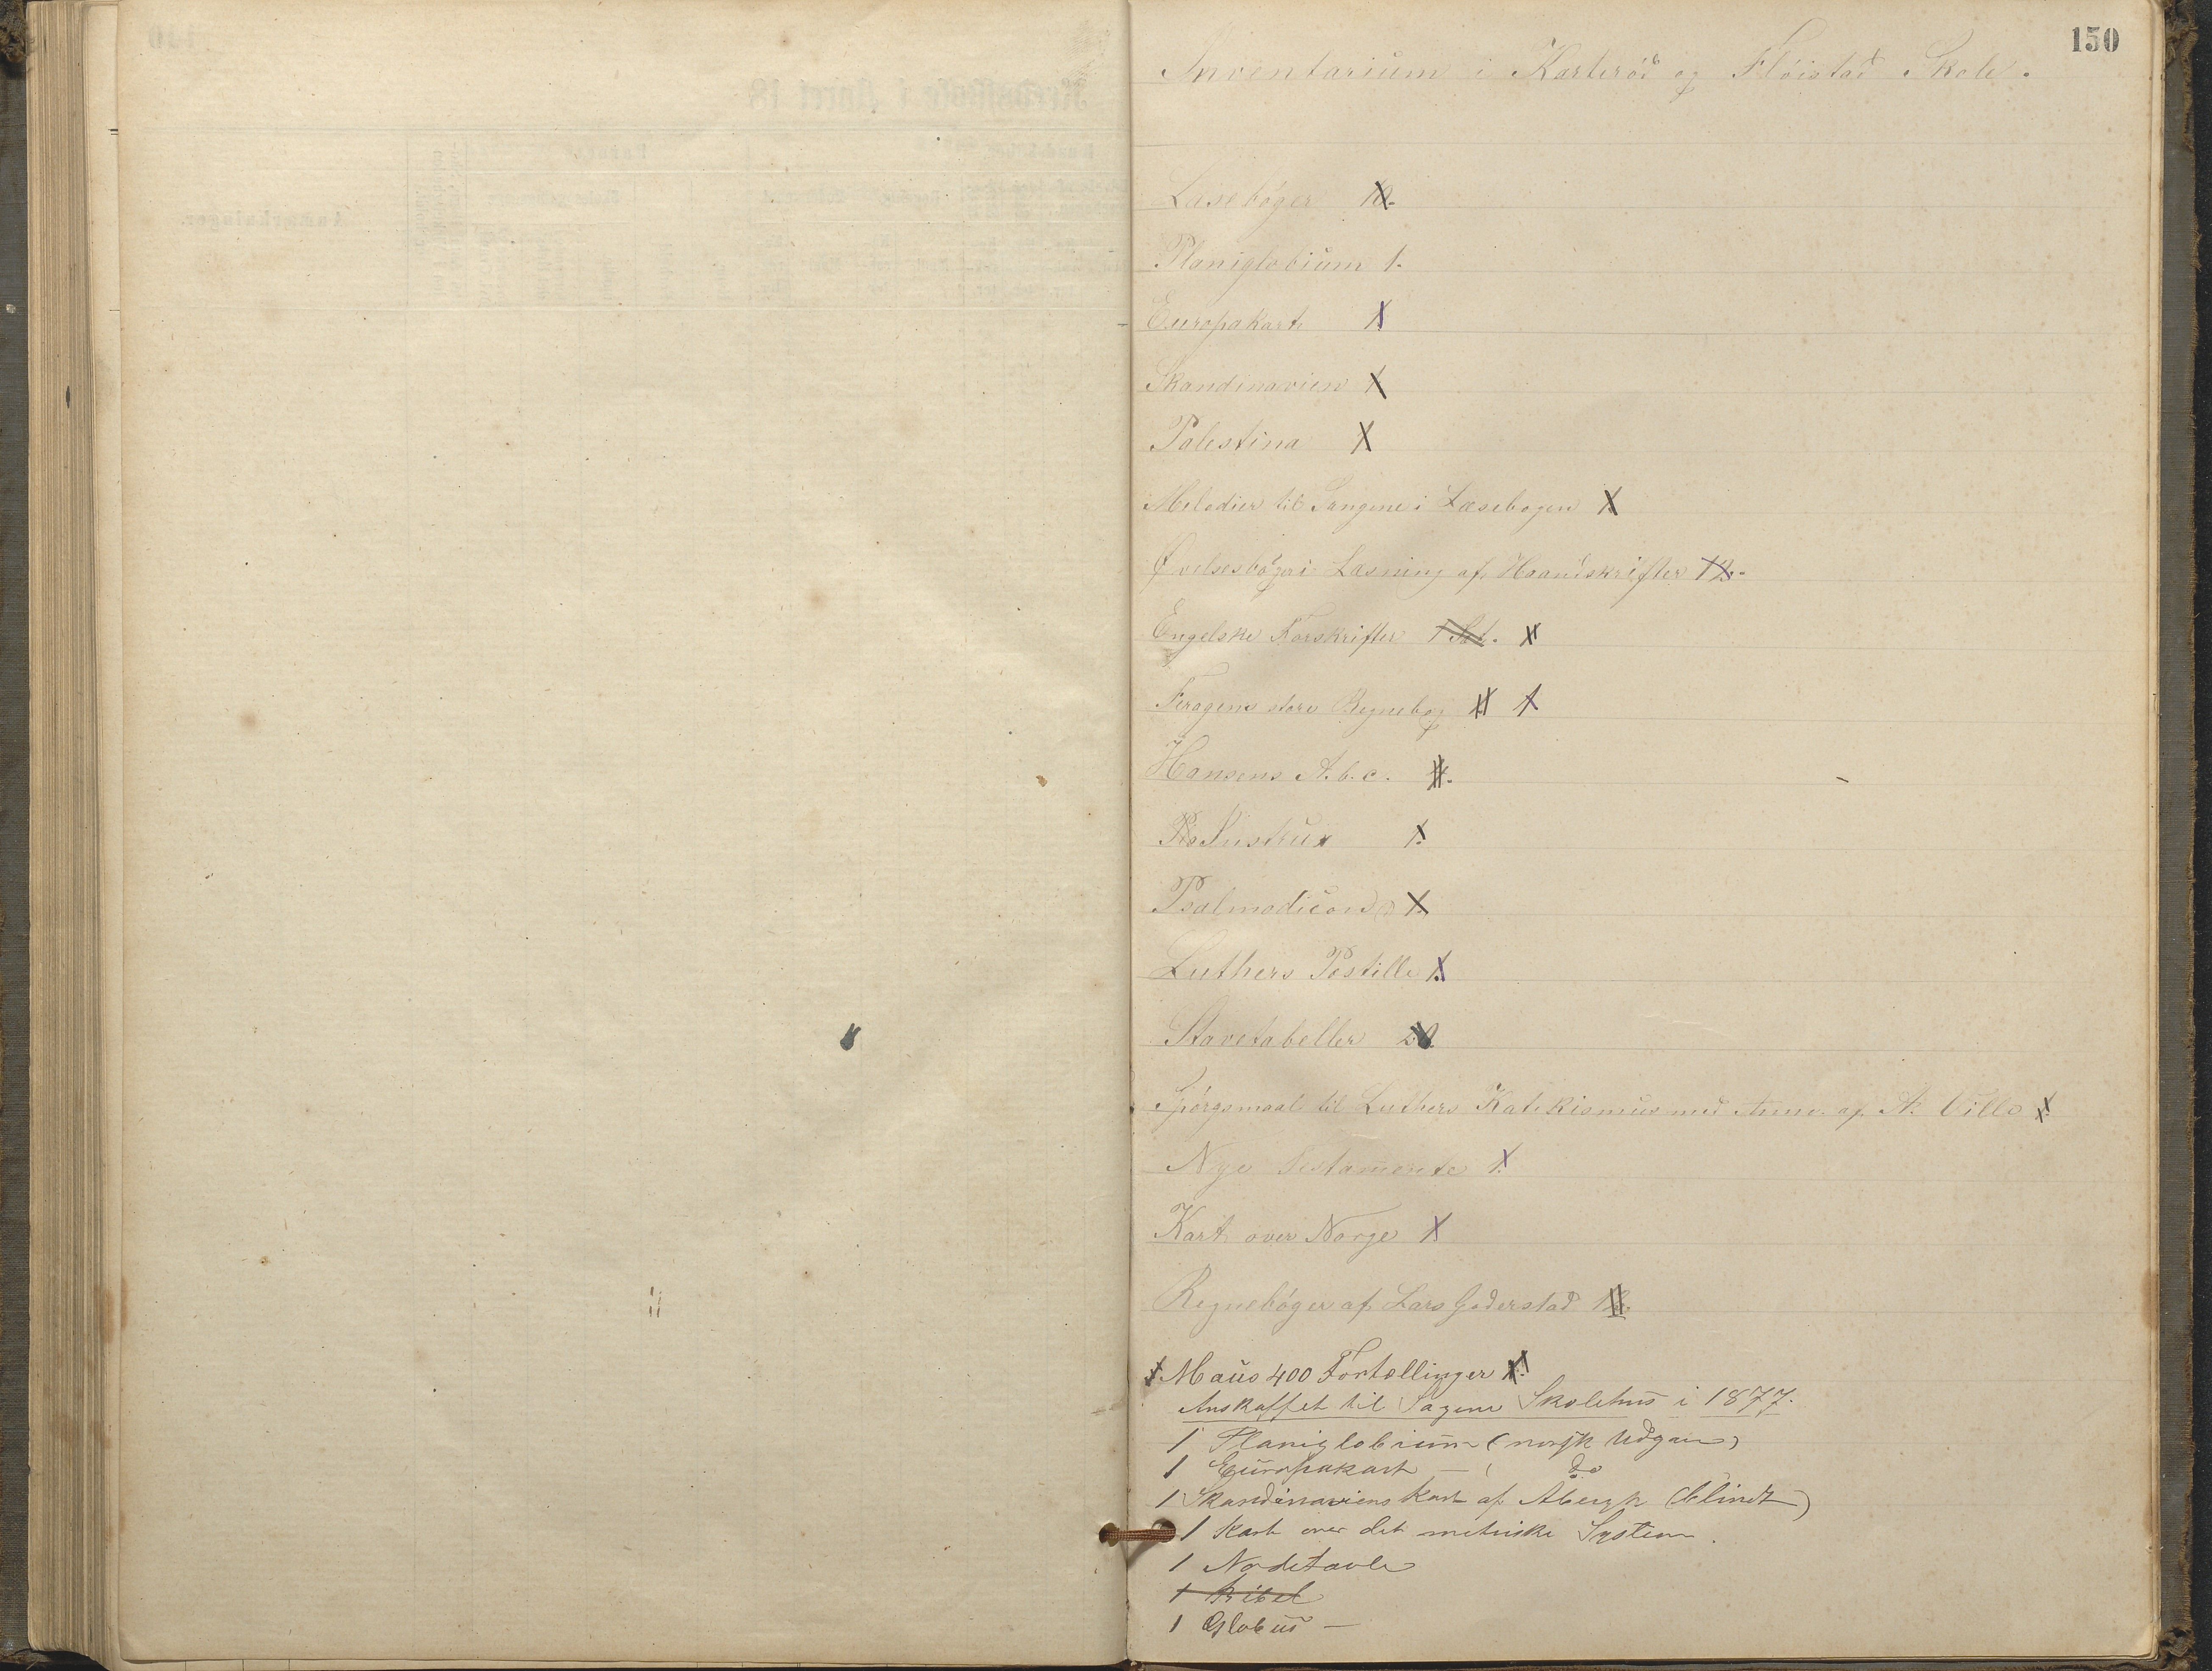 150
Inventarium i Karterød og Fløistad Skole.
Læsebøger 10.
Planiglobium 1.
Europakart 1
Skandinavien 1
Palestina 1
Melodier til Sangene i Læsebogen 1.
Øvelsesbøger i Læsning af Haandskrifter 12.
Engelske Forskrifter 1 St.
Feragens store Regnebog 1
Hansens A.b.c.
1.
Psalmodicon 1.
Luthers Postille 1.
Stavetabeller 20
Spörgsmaal til Luthers Katekismus med Anm. af A.
Nye Testamente 1.
Kart over Norge 1.
Regnebøger af Lars Goderstad
Maus 400 Fortællinger
Anskaffet til Sagene Skolehus i 1877.
1 Planiglobium (norsk Udgave)
1 Europakart — ( do
1 Skandinaviens Kart af
1 Kart over det metriske System.
1 Nodetavle
1 Bibel
1 Globus —